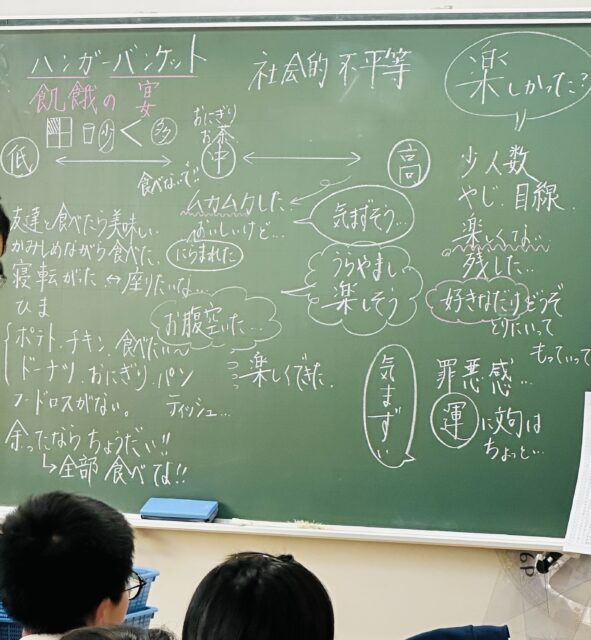 ハンガーバンケット
社会的不平等
楽しかった?
飢餓の宴
少 < 多
おにぎり
お茶
低
中
高
食べないで!!
友達と食べたら美味しい
かみしめながら食べた、
寝転がった ↔ 座りたいな…
ひま
ムカムカした、
おいしいけど…
にらまれた
気まずそう…
うらやましい
楽しそう
お腹空いた…
少人数
やじ、目線
楽しくない…
残した…
好きなだけどうぞ
とりたいって
もっていって
ポテト、チキン、食べたい〜
ドーナツ、おにぎり、パン
フードロスがない。
ティッシュ…
楽しくできた
余ってたならちょうだい!!
↳全部食べてよ!!
気まずい
罪悪感…
運に文句は
ちょっと…
6P